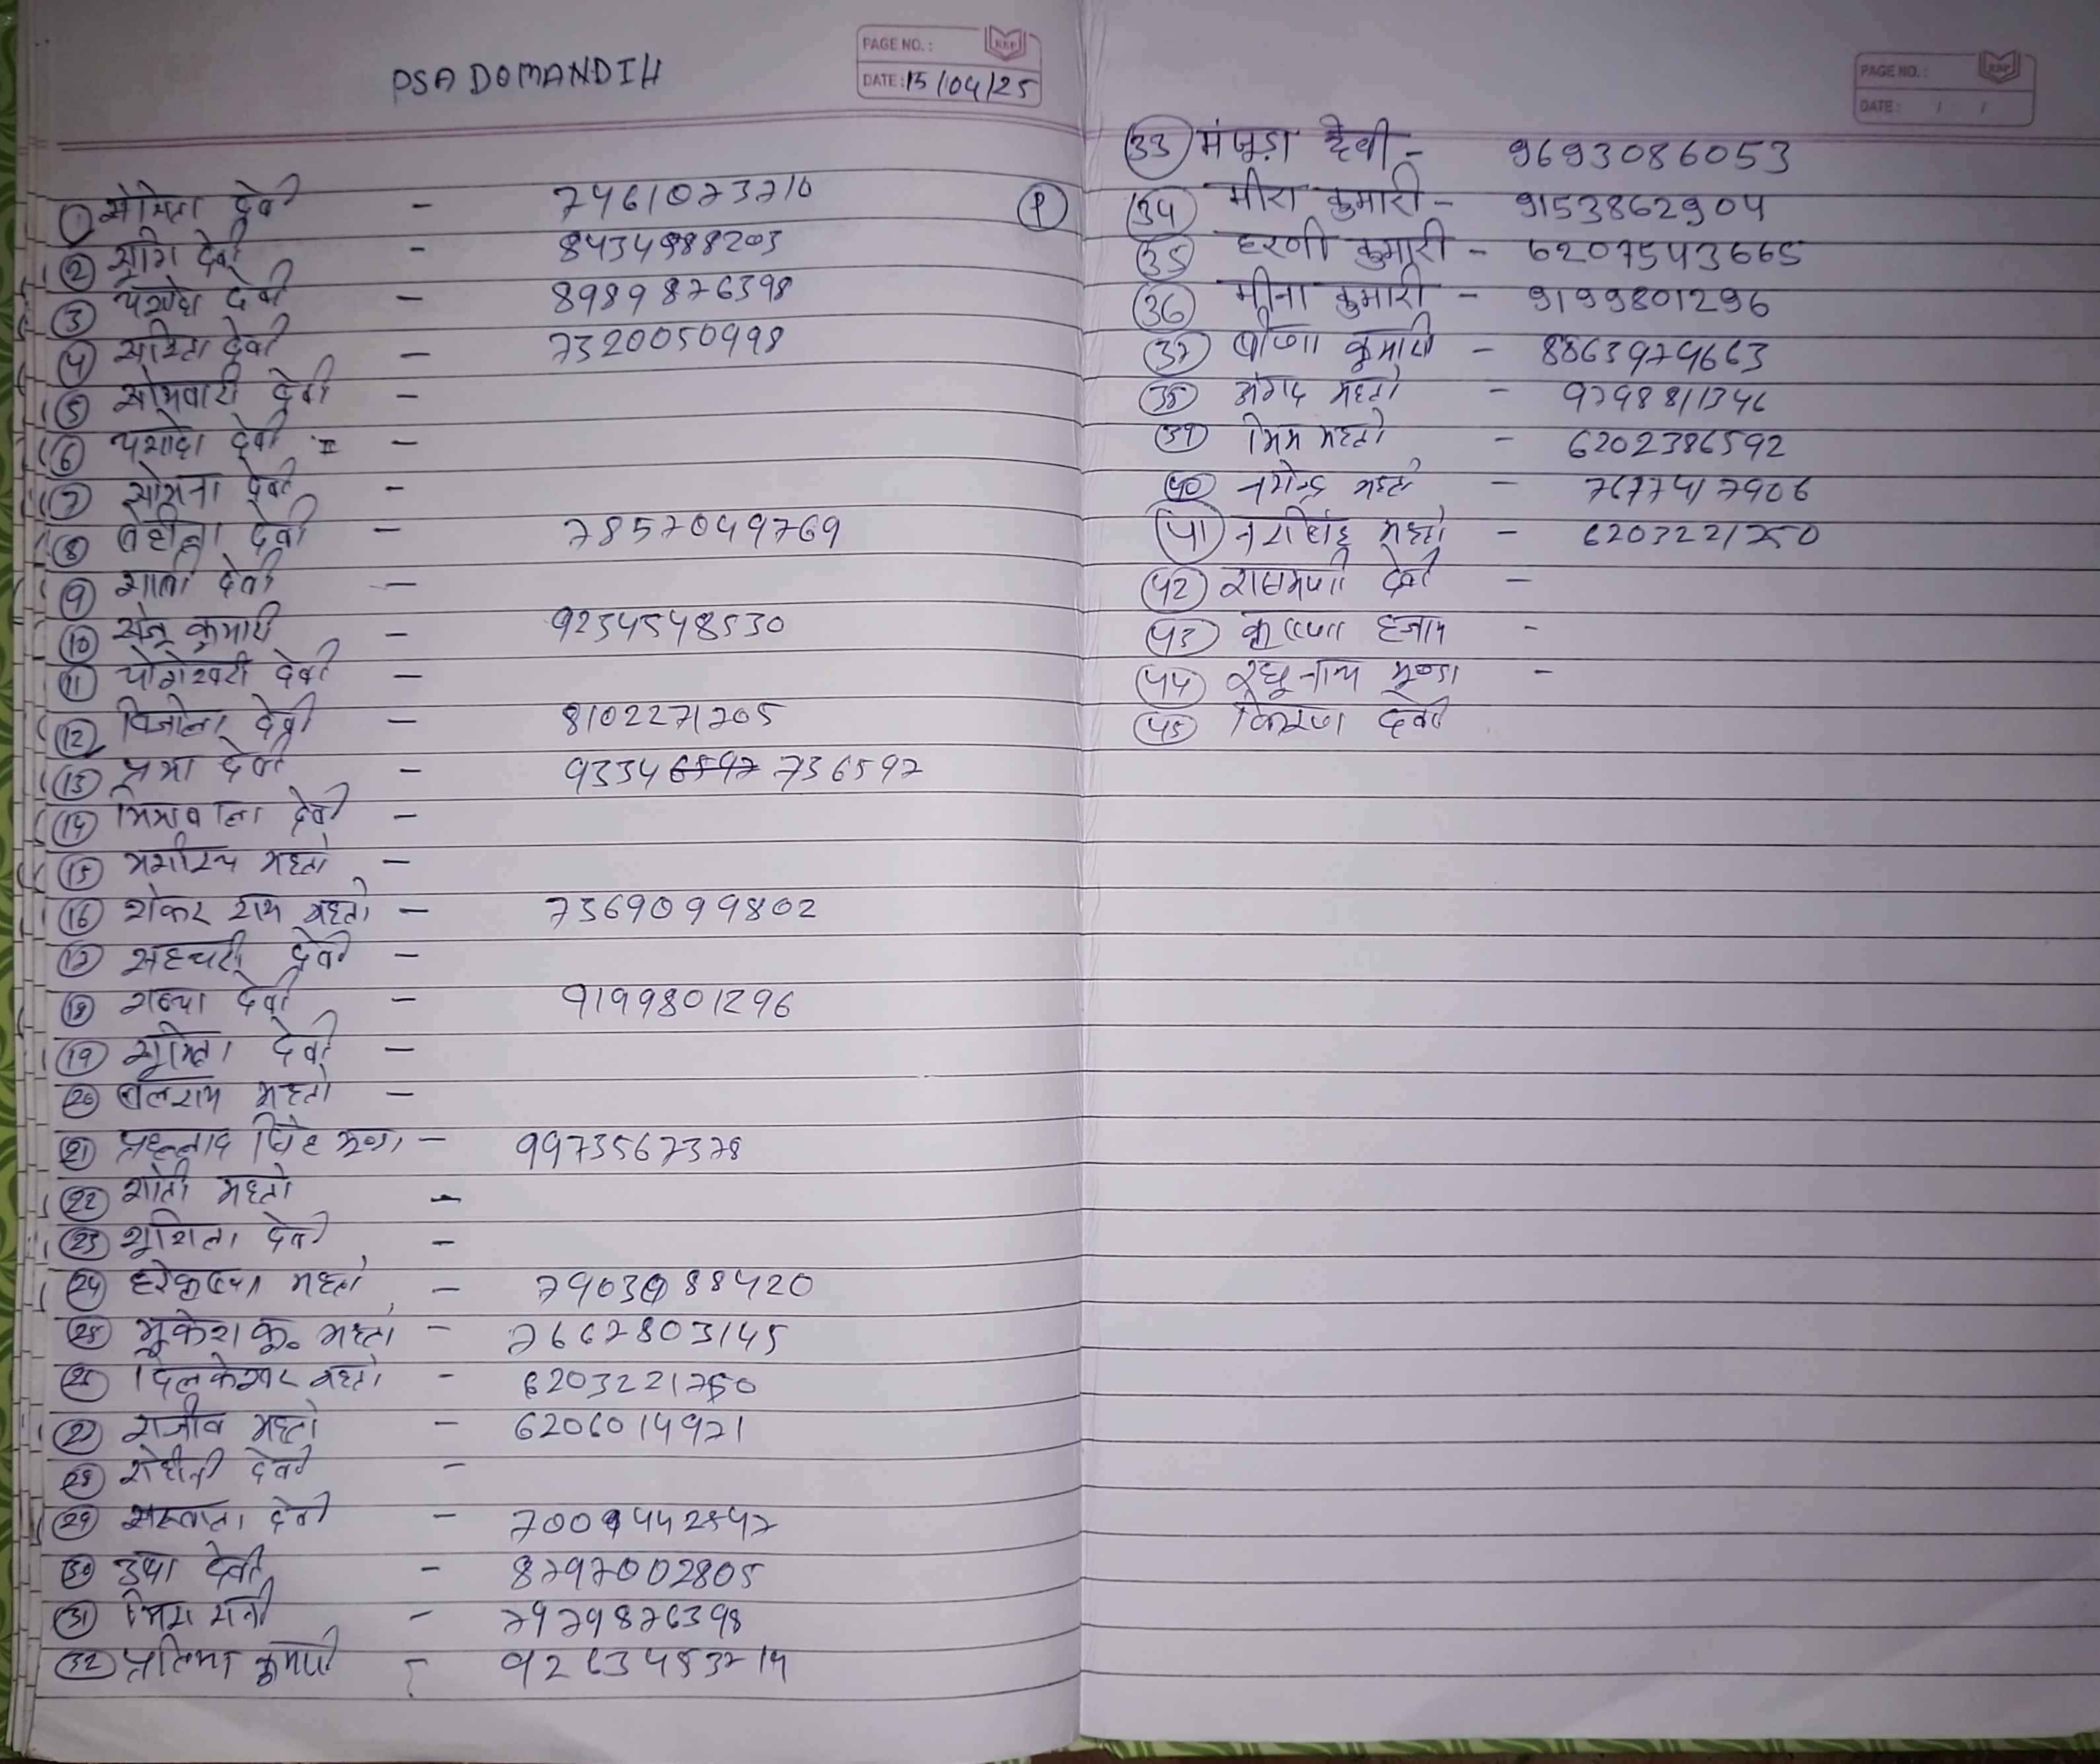 PAGE NO. :
DATE : 15/04/25
PSA DOMANDIH
1 सोमिता देवी - 7461073710
2 सुमि देवी - 8434988203
3 यशोदा देवी - 8989876398
4 सरिता देवी - 7320050998
5 सोमवारी देवी -
6 यशोदा देवी II -
7 सोमना देवी -
8 बेहुला देवी - 7857049769
9 शान्ती देवी -
10 सेनू कुमारी - 9234548530
11 योगेश्वरी देवी -
12 विजोला देवी - 8102271705
13 प्रभा देवी - 93346597 736597
14 देवी -
15 भगीरथ महतो -
16 शंकर राम महतो - 7369099802
17 सहचरी देवी -
18 देवी - 9199801296
19 सुमित्रा देवी -
20 बलराम महतो -
21 प्रहल्लाद सिंह मुण्डा - 9973567378
22 महतो -
23 सुशिला देवी -
24 हरेकृष्णा महतो - 7903088420
25 मुकेश कु० महतो - 7667803145
26 दिलकेश्वर महतो - 6203221750
27 राजीव महतो - 6206014971
28 रोहीनी देवी -
29 देवी - 7009442547
30 उषा देवी - 8797002805
31 - 7979876398
32 प्रतिमा कुमारी - 9263483714
PAGE NO. :
DATE : / /
33 मंजूड़ा देवी - 9693086053
P 34 मीरा कुमारी - 9153862904
35 हरणी कुमारी - 6207543665
36 मीना कुमारी - 9199801296
37 वीणा कुमारी - 8863979663
38 अंगद महतो - 9798811346
39 भिम महतो - 6202386592
40 नगेन्द्र महतो - 7677417906
41 नरसिंह महतो - 6203221750
42 रासमणी देवी -
43 कृष्णा हजाम -
44 रघुनाथ मुण्डा -
45 किरण देवी